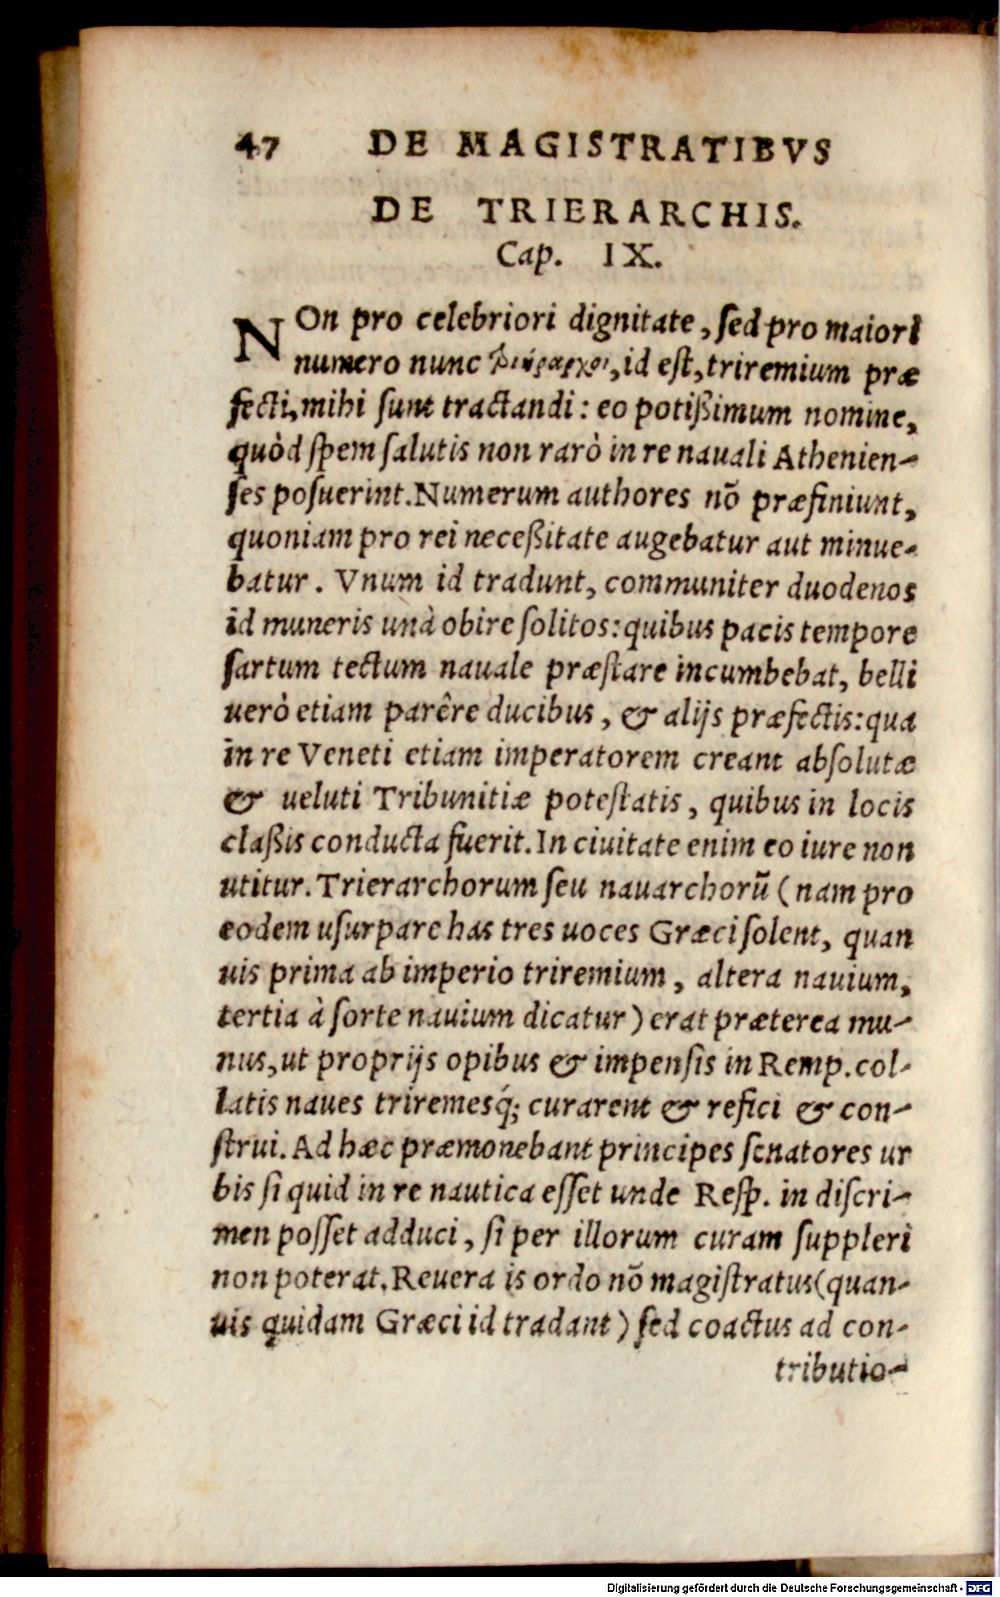 47 DE MAGISTRATIBVS
DE TRIERARCHIS.
Cap. IX.
NOn pro celebriori dignitate, sed pro maiori
numero nunc τριήραρχοι, id est, triremium præ
fecti, mihi sunt tractandi: eo potißimum nomine,
quòd spem salutis non rarò in re nauali Athenien-
ses posuerint. Numerum authores nō præfiniunt,
quoniam pro rei neceßitate augebatur aut minue-
batur. Vnum id tradunt, communiter duodenos
id muneris unà obire solitos: quibus pacis tempore
sartum tectum nauale præstare incumbebat, belli
uerò etiam parêre ducibus, & alijs præfectis: qua
in re Veneti etiam imperatorem creant absolutæ
& ueluti Tribunitiæ potestatis, quibus in locis
claßis conducta fuerit. In ciuitate enim eo iure non
utitur. Trierarchorum seu nauarchorū (nam pro
eodem usurpare has tres uoces Græci solent, quan
uis prima ab imperio triremium, altera nauium,
tertia à sorte nauium dicatur) erat præterea mu-
nus, ut proprijs opibus & impensis in Remp. col-
latis naues triremesq́; curarent & refici & con-
strui. Ad hæc præmonebant principes senatores ur
bis si quid in re nautica esset unde Resp. in discri-
men posset adduci, si per illorum curam suppleri
non poterat. Reuera is ordo nō magistratus (quan-
uis quidam Græci id tradant) sed coactus ad con-
tributio-
Digitalisierung gefördert durch die Deutsche Forschungsgemeinschaft - DFG